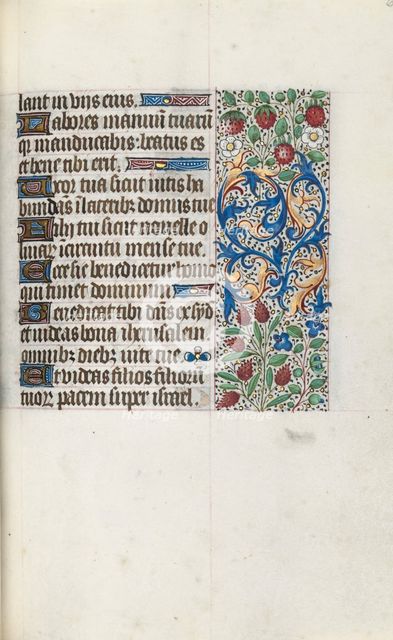 lant in viis eius.
Labores manuum tuarū
qͥ manducabis: beatus es
et bene tibi erit.
Uxor tua sicut vitis ha
bundās ī lateribꝫ domus tue
Filij tui sicut novelle o
livarū
in circuitu mense tue.
Ecce sic benedicetur homo
qui timet dominum
Benedicat tibi dn̄s ex syō
et videas bona iherusalem
omnibꝫ diebꝫ vite tue
Et videas filios filiorū
tuorꝝ pacem super israel.
heritage